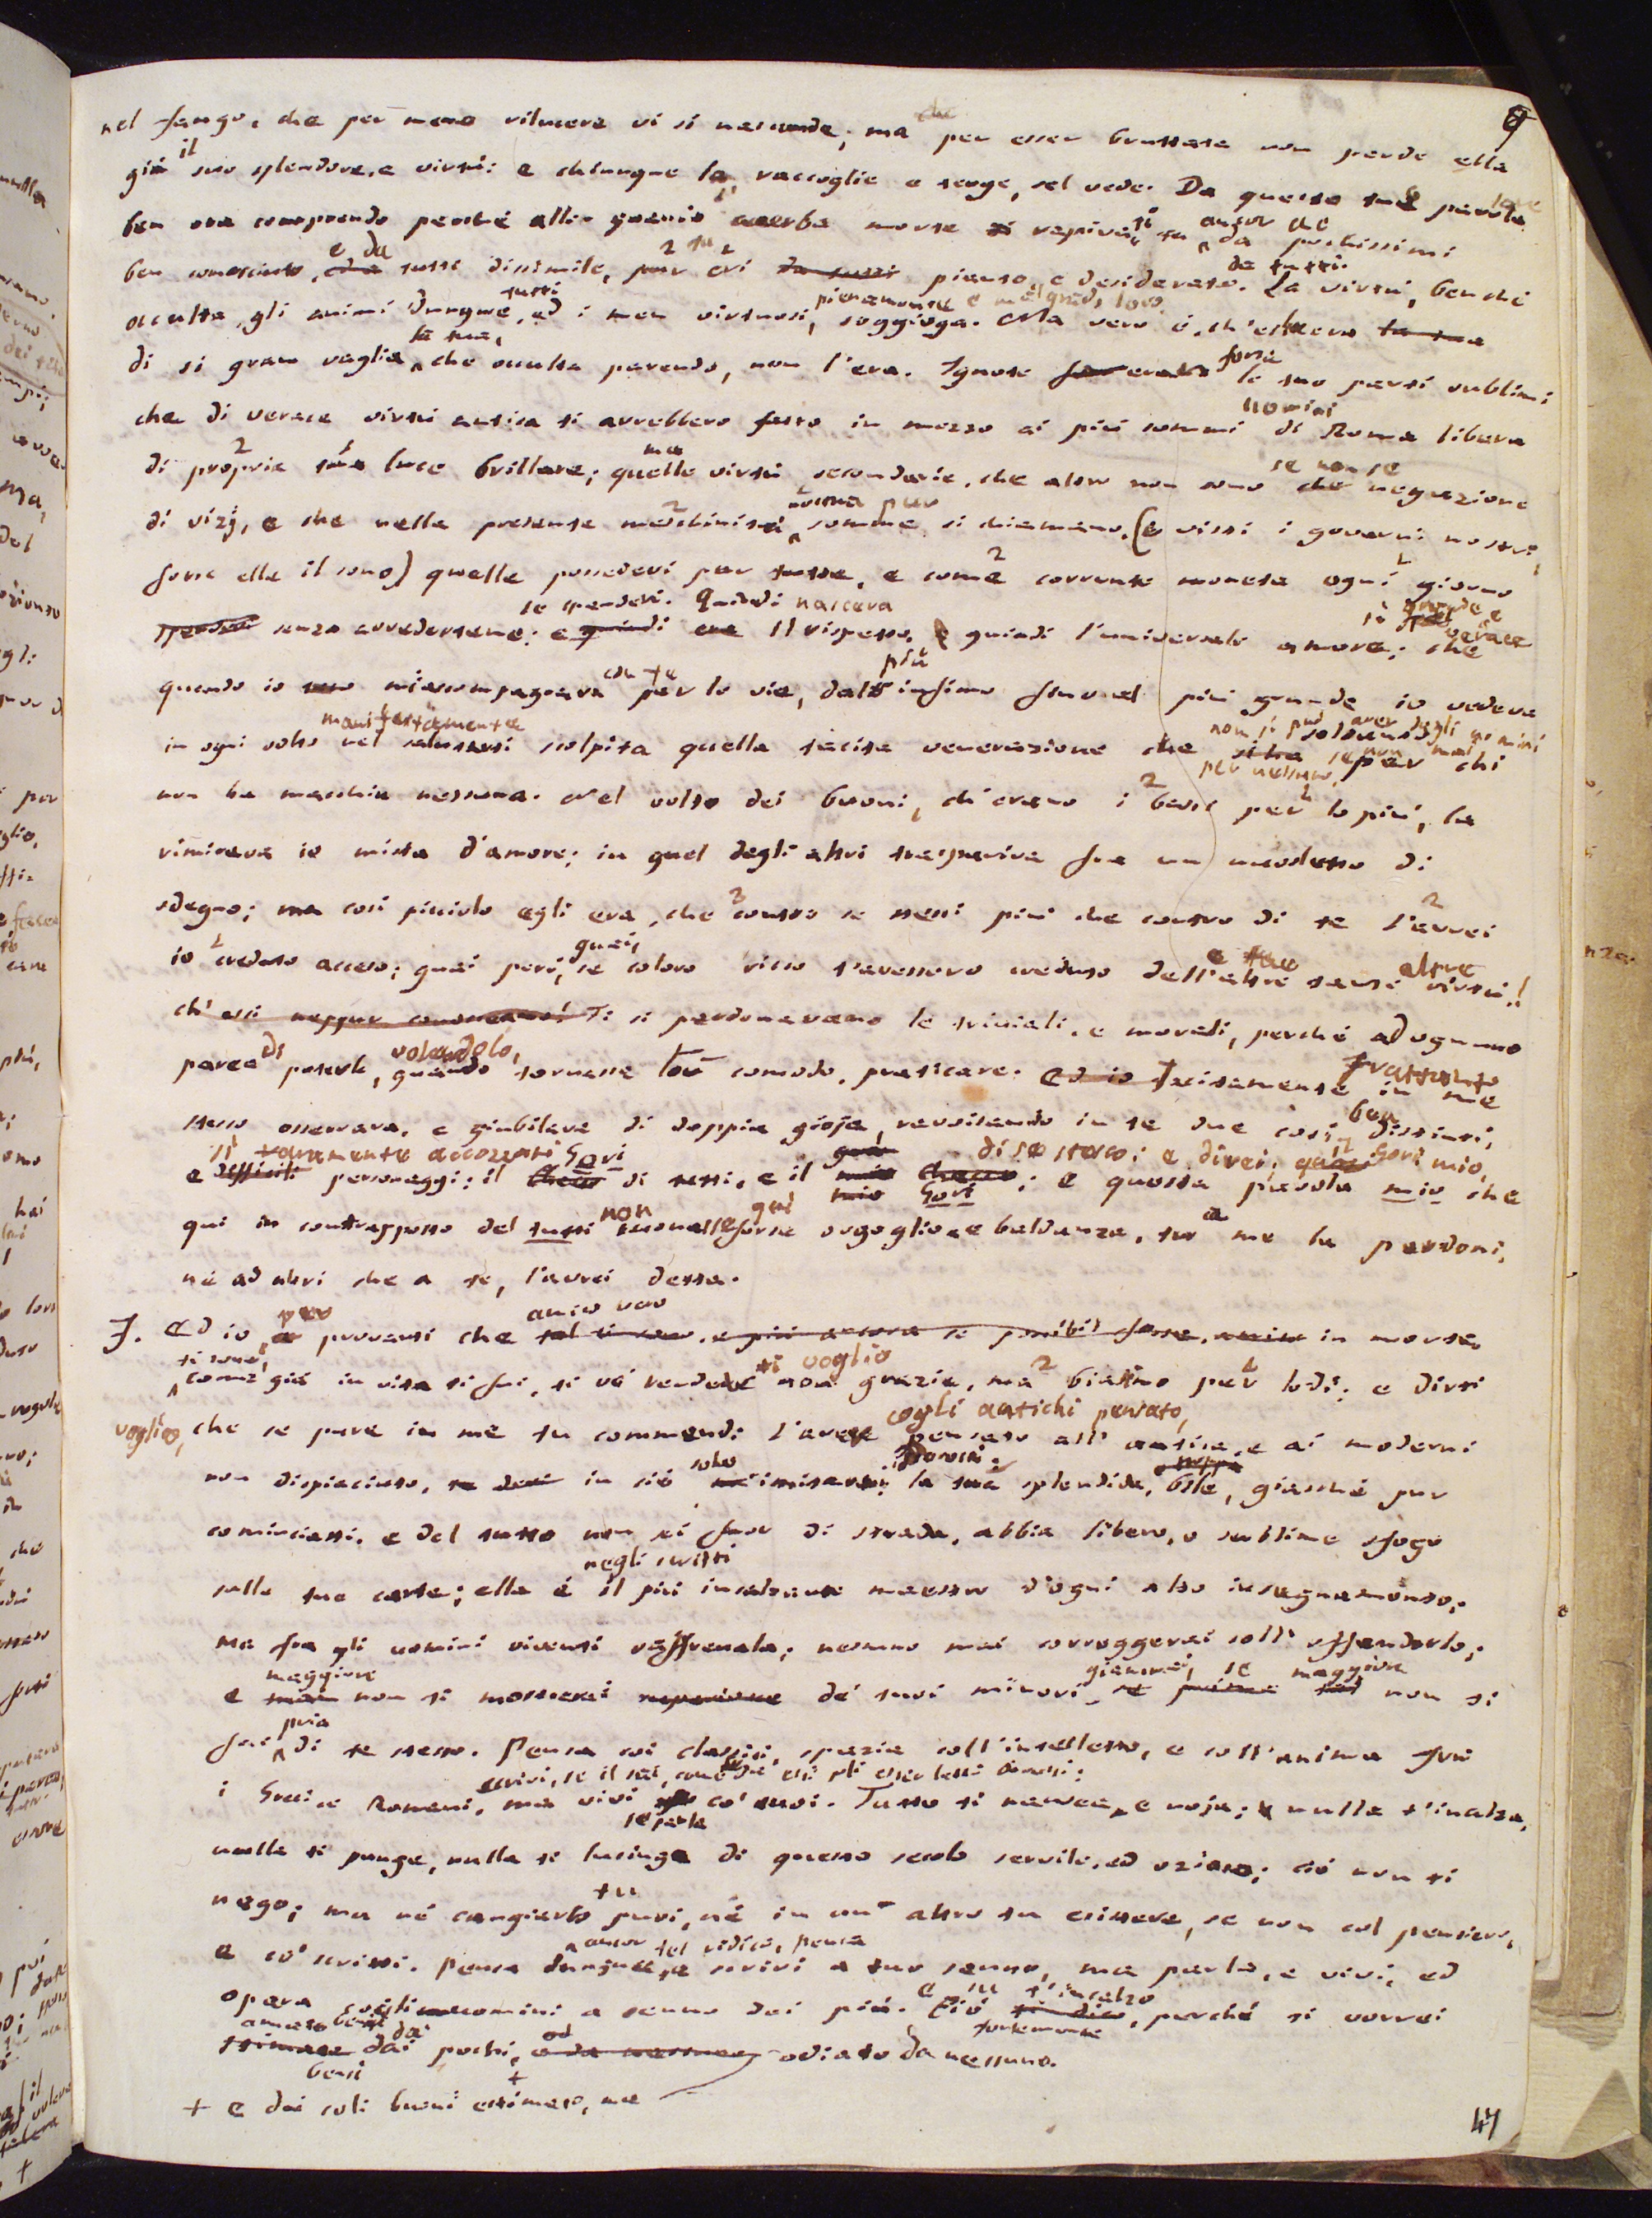 nel fango, che per meno rilucere vi si nasconde; ma per esser bruttata non perde ella
già il suo splendore, e virtù: e chiunque la raccoglie e terge, sel vede. Da queste tue parole
ben ora comprendo perchè allor quando acerba morte ti rapiva, tu ancor che da pochissimi
ben conosciuto, e da tutti dissimile, pur eri tu pianto, e desiderato da tutti. La virtù, benchè
occulta, gli animi dunque tutti, ed i men virtuosi, pienamente e malgrado loro soggioga. Ma vero è, ch'ell'era
di sì gran vaglia la tua, che occulta parendo, non l'era. Ignote erano forse le tue parti sublimi
che di verace virtù antica ti avrebbero fatto in mezzo ai più sommi uomini di Roma libera
di propria tua luce brillare; ma quelle virtù secondarie, che altro non sono se non se negazione
di vizj, e che nella presente meschinità nostra pur somme si chiamano, (e visti i governi nostri,
forse elle il sono) quelle possedevi pur tutte, e come corrente moneta ogni giorno
le spendevi senza avvedertene: Quindi nasceva il rispetto, quindi l'universale sì grande e verace amore; che
quando io con te m'accompagnava per le vie, dal più infimo fino al più grande io vedeva
in ogni volto nel salutarti manifestamente scolpita quella tacita venerazione che non si può aver dagli uomini soltanto se non mai per nessuno, per chi
non ha macchia nessuna. Nel volto dei buoni, ch'erano i bassi per lo più, la
rimirava io mista d'amore; in quel degli altri traspariva fra un modesto di
sdegno; ma così picciolo egli era, che contro se stessi più che contro di te l'avrei
io creduto acceso; guai però, guai, se coloro ricco t'avessero creduto dell'altre tante e tue altre virtù!
ch'essi neppur conosceano! Ti si perdonavano le triviali, e morali, perchè ad ognuno
parea di poterle, volendolo, quando tornasse lor comodo, praticare. Ed io Tacitamente frattanto in me
stesso osservava, e giubilava di doppia gioja, ravvisando in te due così ben distinti,
e sì raramente accozzati personaggi: il Gori di tutti, e il Gori di se stesso; e direi, quasi il Gori mio; e questa parola mio che
qui in contrapposto del tutti non suonasse forse qui orgoglio, e baldanza, tu a me la perdoni,
nè ad altri che a te, l'avrei detta.
F. Ed io, per provarti che amico vero tal ti sono, e più ancora se possibil fosse, amico in morte,
ti sono, come già in vita ti fui, ti vo' rendere non ti voglio grazie, ma biasimo per lodi; e dirti
voglio, che se pure in me tu commendi l'aver cogli antichi pensato, pensato all'antica, e ai moderni
non dispiaciuto, in ciò solo m'imitar dovrai: la tua splendida bile, giacchè pur
cominciasti, e del tutto non sei fuor di strada, abbia libero, e sublime sfogo
nelle tue carte; ella è negli scritti il più incalzante maestro d'ogni alto insegnamento;
ma fra gli uomini viventi raffrenala; nessuno mai correggerai coll'offenderlo;
e maggiore non ti mostrerai superiore de' tuoi minori giammai, se maggiore non ti
fai pria di te stesso. Pensa coi classici, spazia coll'intelletto, e coll'anima fra
i Greci e Romani, scrivi, se il sai, come se da essi soli esser letto dovessi; ma vivi e parla co' tuoi. Tutto ti nausea, e noja; nulla t'incalza,
nulla ti punge, nulla ti lusinga di questo secolo servile, ed ozioso; ciò non ti
nego; ma nè cangiarlo tu puoi, nè in un altro tu esistere, se non col pensiero,
e co' scritti. Pensa dunque, ancor tel ridico, pensa e scrivi a tuo senno, ma parla, e vivi, ed
opera cogli uomini a senno dei più. E in ciò t'incalzo fortemente, perchè ti vorrei
amato bensì dai pochi, od odiato da nessuno.
+ e dai soli buoni estimato, ma
47